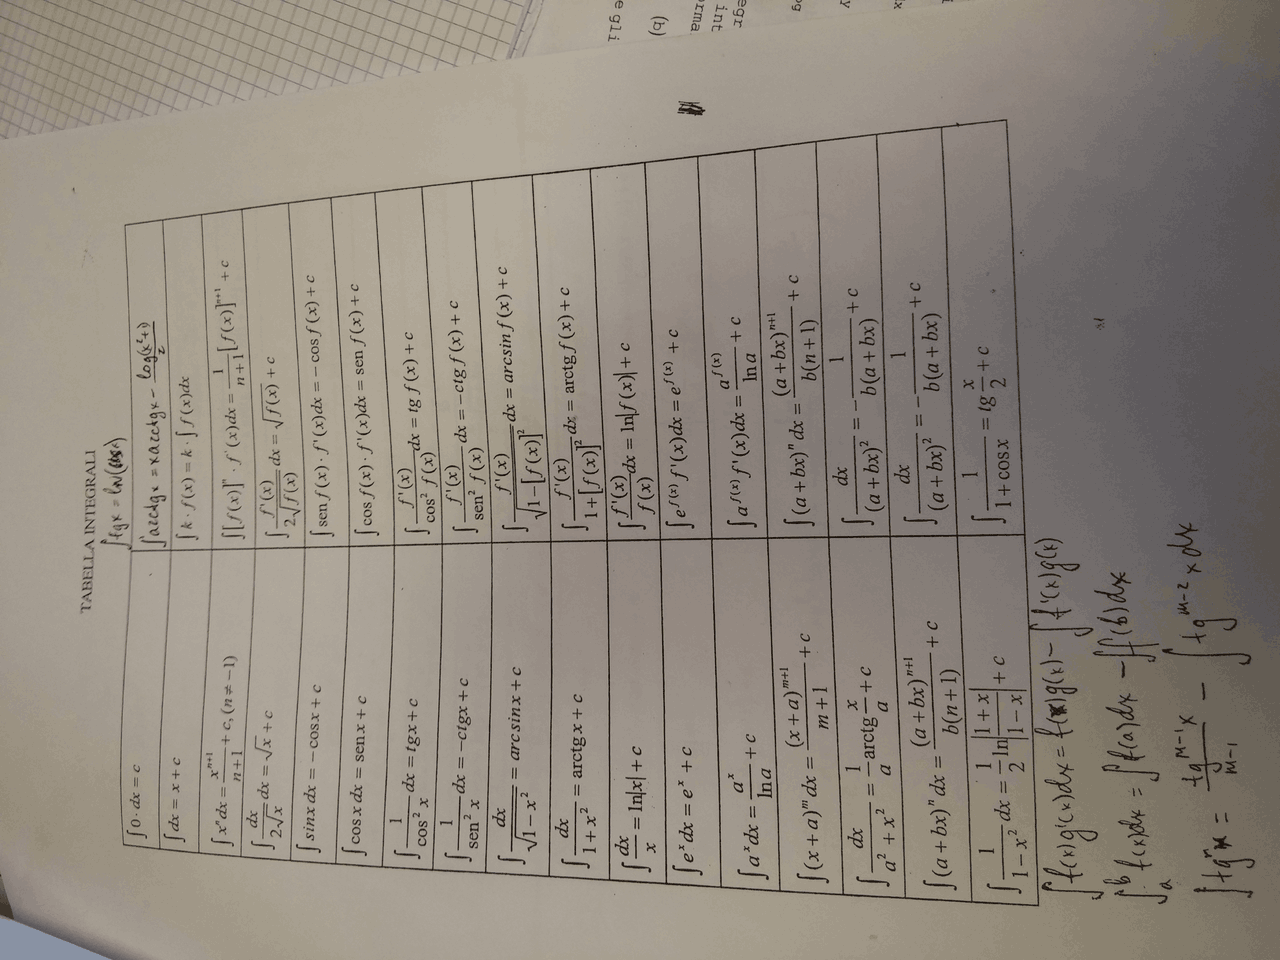 TABELLA INTEGRALI
∫tgx = ln(cosx)
∫0·dx = c
∫arctgx = xarctgx - log(x²+1)/2
∫dx = x + c
∫k·f(x) = k·∫f(x)dx
∫xⁿdx = xⁿ⁺¹/(n+1) + c, (n ≠ -1)
∫[f(x)]ⁿ · f'(x)dx = 1/(n+1) [f(x)]ⁿ⁺¹ + c
∫dx/(2√x) dx = √x + c
∫f'(x)/(2√f(x)) dx = √f(x) + c
∫sinx dx = -cosx + c
∫sen f(x)·f'(x)dx = -cos f(x) + c
∫cosx dx = senx + c
∫cos f(x)·f'(x)dx = sen f(x) + c
∫1/cos² x dx = tgx + c
∫f'(x)/cos² f(x) dx = tg f(x) + c
∫1/sen² x dx = -ctgx + c
∫f'(x)/sen² f(x) dx = -ctg f(x) + c
∫dx/√(1-x²) = arcsinx + c
∫f'(x)/√(1-[f(x)]²) dx = arcsin f(x) + c
∫dx/(1+x²) = arctgx + c
∫f'(x)/(1+[f(x)]²) dx = arctg f(x) + c
∫dx/x = ln|x| + c
∫f'(x)/f(x) dx = ln|f(x)| + c
∫eˣ dx = eˣ + c
∫e^f(x) f'(x)dx = e^f(x) + c
∫aˣdx = aˣ/ln a + c
∫a^f(x) f'(x)dx = a^f(x)/ln a + c
∫(x+a)ᵐ dx = (x+a)ᵐ⁺¹/(m+1) + c
∫(a+bx)ⁿ dx = (a+bx)ⁿ⁺¹/b(n+1) + c
∫dx/(a²+x²) = 1/a arctg x/a + c
∫dx/(a+bx)² = -1/b(a+bx) + c
∫(a+bx)ⁿ dx = (a+bx)ⁿ⁺¹/b(n+1) + c
∫dx/(a+bx)² = -1/b(a+bx) + c
∫1/(1-x²) dx = 1/2 ln|(1+x)/(1-x)| + c
∫1/(1+cosx) = tg x/2 + c
∫f(x)g'(x)dx = f(x)g(x) - ∫f'(x)g(x)
∫ₐᵇ f(x)dx = ∫f(a)dx - ∫f(b)dx
∫tgⁿx = tgᵐ⁻¹x/(m-1) - ∫tgᵐ⁻²x dx
e gli
(b)
orma
int
egr